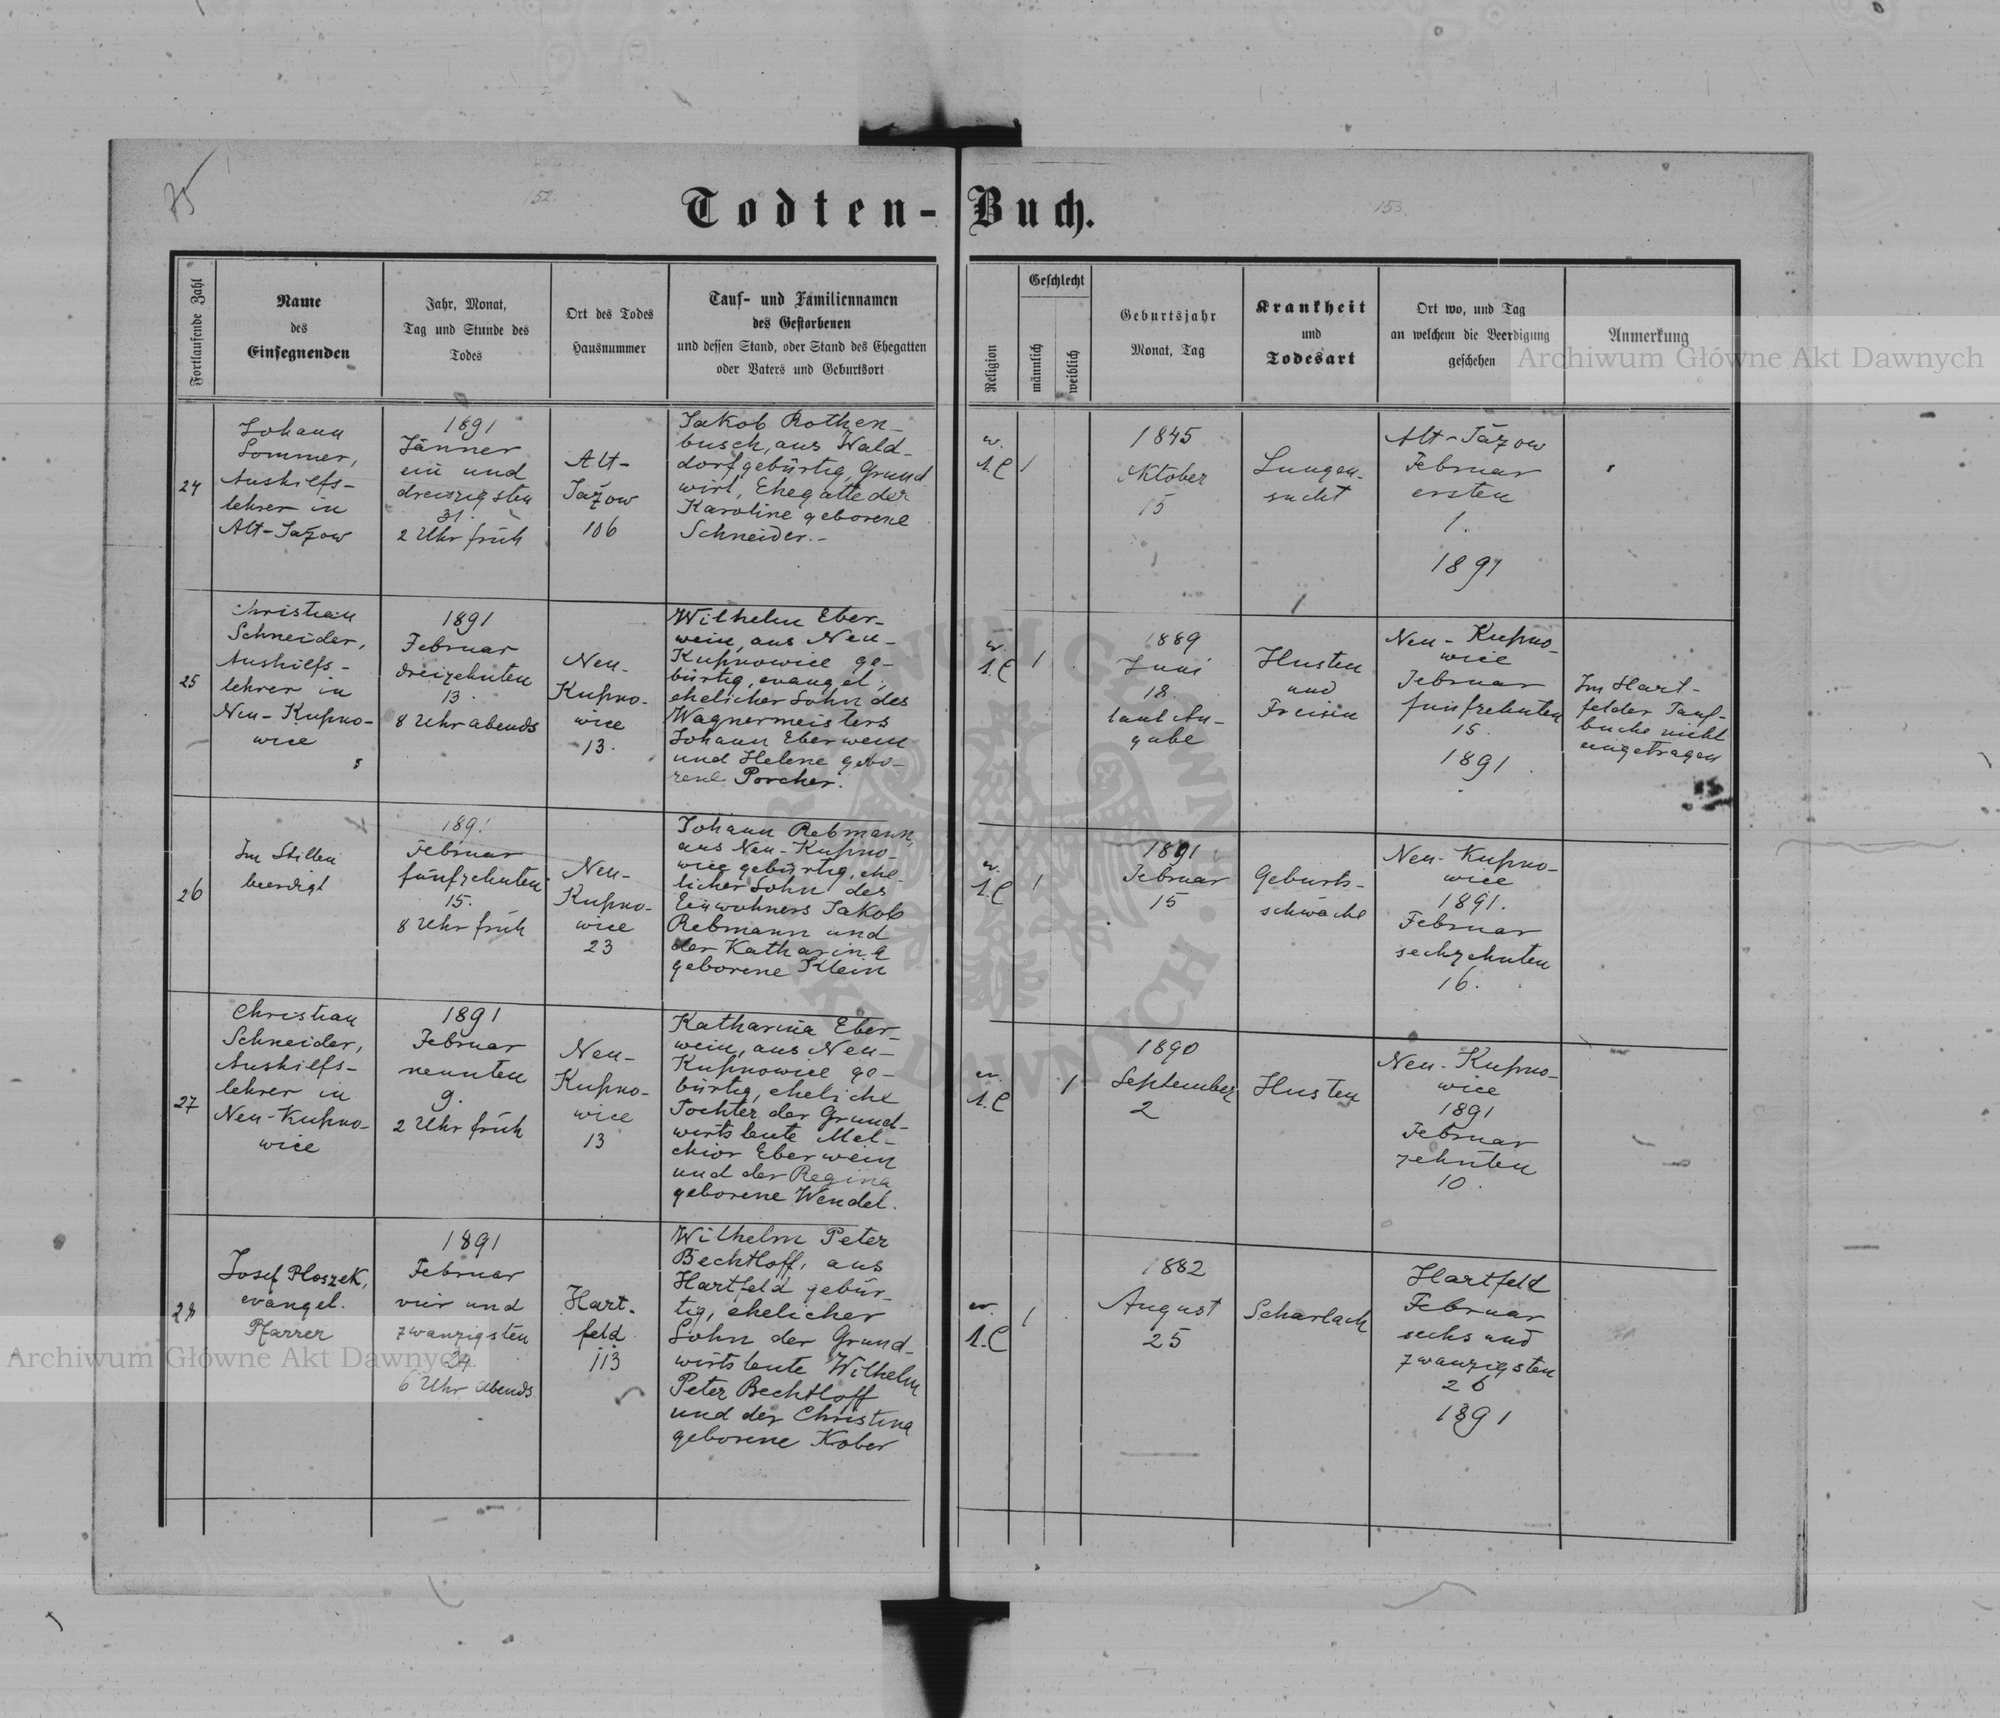 75
152
153
Todten-Buch.
Fortlaufende Zahl
Name
des
Einsegnenden
Jahr, Monat,
Tag und Stunde des
Todes
Ort des Todes
Hausnummer
Tauf- und Familiennamen
des Gestorbenen
und dessen Stand, oder Stand des Ehegatten
oder Vaters und Geburtsort
Religion
Geschlecht
männlich
weiblich
Geburtsjahr
Monat, Tag
Krankheit
und
Todesart
Ort wo, und Tag
an welchem die Beerdigung
geschehen
Anmerkung
Archiwum Główne Akt Dawnych
24
Johann
Sommer,
Aushilfs-
lehrer in
Alt-Jažow
1891
Jänner
ein und
dreiszigsten
31.
2 Uhr früh
Alt-
Jažow
106
Jakob Rothen-
busch, aus Wald-
dorf gebürtig, Grund
wirt, Ehegatte der
Karoline geborene
Schneider.-
1
1845
Oktober
15
Lungen-
sucht
Alt-Jažow
Februar
ersten
1.
1891
25
Christian
Schneider,
Aushilfs-
lehrer in
Neu-Kupno-
wice
1891
Februar
dreizehnten
13.
8 Uhr abends
Neu-
Kupno-
wice
13.
Wilhelm Eber-
wein, aus Neu-
Kupnowice ge-
bürtig, evangel.,
ehelicher Sohn des
Wagnermeisters
Johann Eberwein
und Helene gebo-
rene Porcher.
1
1889
Juni
18.
laut An-
gabe
Husten
und
Freisen
Neu-Kupno-
wice
Februar
fünfzehnten
15.
1891
Im Hart-
felder Tauf-
buche nicht
eingetragen
26
Im Stillen
beerdigt
1891
Februar
fünfzehnten
15.
8 Uhr früh
Neu-
Kupno-
wice
23
Johann Rebmann,
aus Neu-Kupno-
wice gebürtig, ehe-
licher Sohn des
Einwohners Jakob
Rebmann und
der Katharina
geborene Klein
1
1891
Februar
15
Geburts-
schwäche
Neu-Kupno-
wice
1891.
Februar
sechzehnten
16.
27
Christian
Schneider,
Aushilfs-
lehrer in
Neu-Kupno-
wice
1891
Februar
neunten
9.
2 Uhr früh
Neu-
Kupno-
wice
13
Katharina Eber-
wein, aus Neu-
Kupnowice ge-
bürtig, eheliche
Tochter der Grund-
wirtsleute Mel-
chior Eberwein
und der Regina
geborene Wendel.
1
1890
September
2
Husten
Neu-Kupno-
wice
1891
Februar
zehnten
10.
28
Josef Ploszek,
evangel.
Pfarrer
1891
Februar
vier und
zwanzigsten
24
6 Uhr abends
Hart-
feld
113
Wilhelm Peter
Bechtloff, aus
Hartfeld gebür-
tig, ehelicher
Sohn der Grund-
wirtsleute Wilhelm
Peter Bechtloff
und der Christina
geborene Kober
1
1882
August
25
Scharlach
Hartfeld
Februar
sechs und
zwanzigsten
26
1891
Archiwum Główne Akt Dawnych